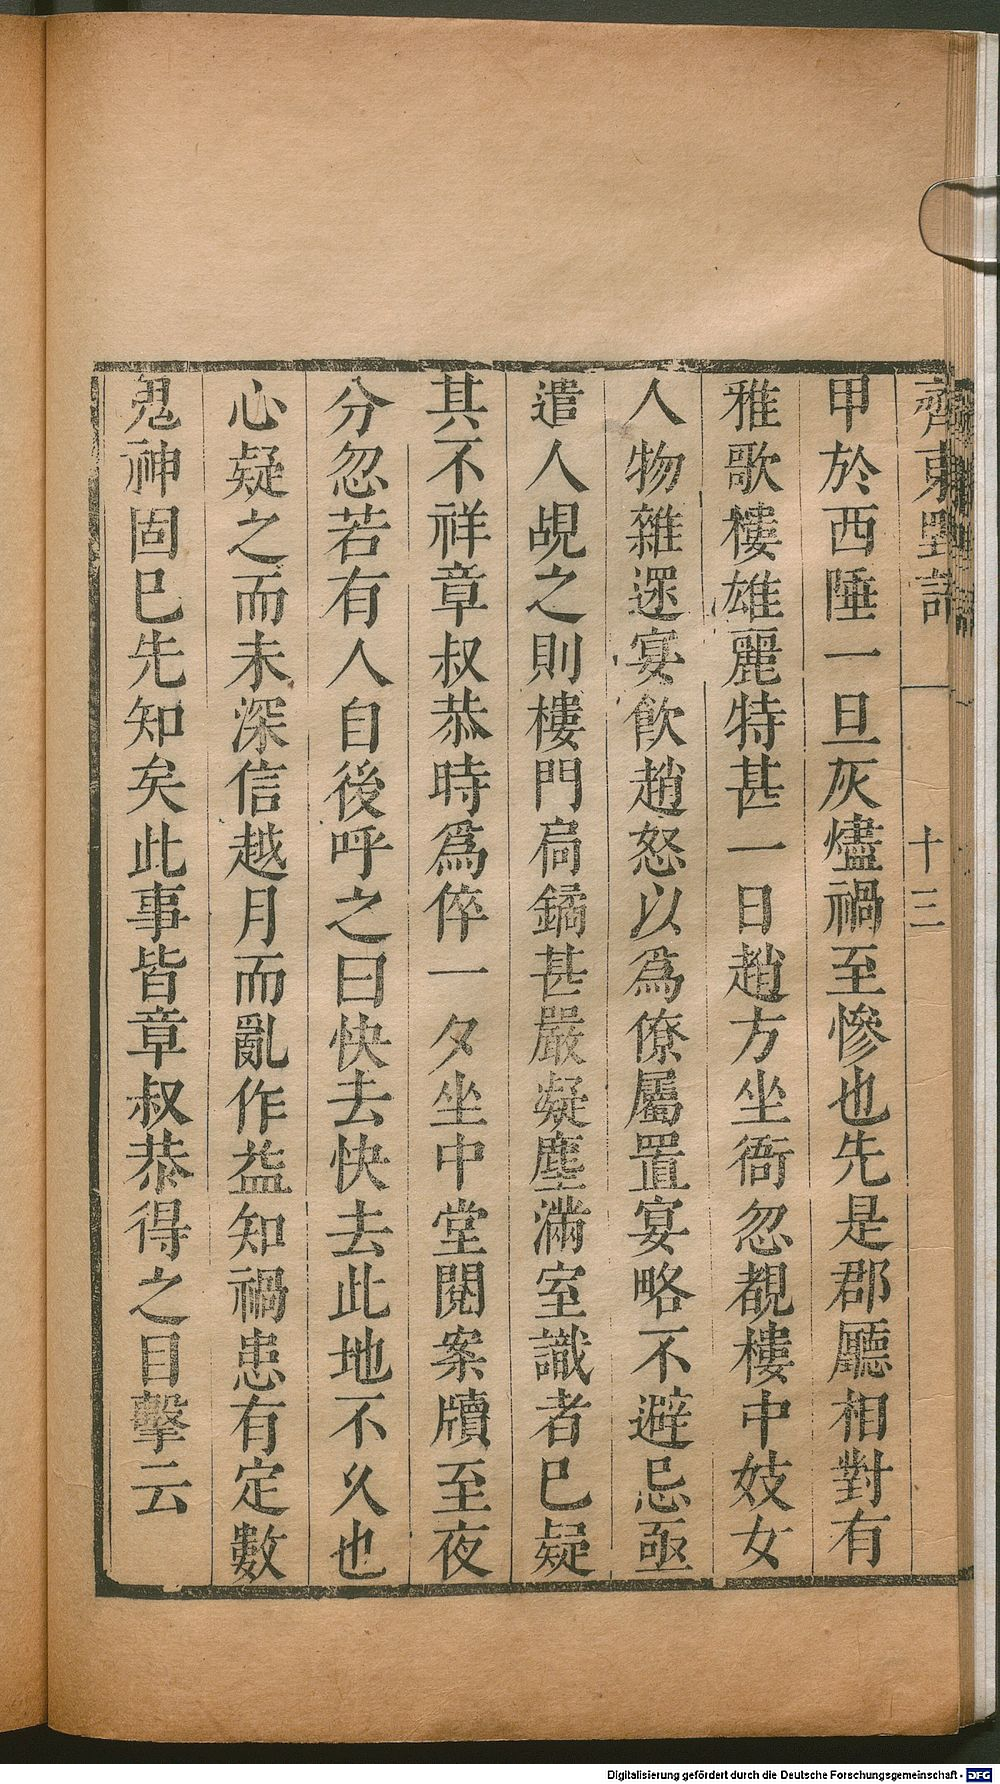 齊東野語
十三
甲於西陲一旦灰燼禍至慘也先是郡廳相對有
雅歌樓雄麗特甚一日趙方坐衙忽覩樓中妓女
人物雜遝宴飲趙怒以爲僚屬置宴略不避忌亟
遣人覘之則樓門扃鐍甚嚴凝塵滿室識者巳疑
其不祥章叔恭時爲倅一夕坐中堂閱案牘至夜
分忽若有人自後呼之曰快去快去此地不久也
心疑之而未深信越月而亂作益知禍患有定數
鬼神固巳先知矣此事皆章叔恭得之目擊云
Digitalisierung gefördert durch die Deutsche Forschungsgemeinschaft - DFG